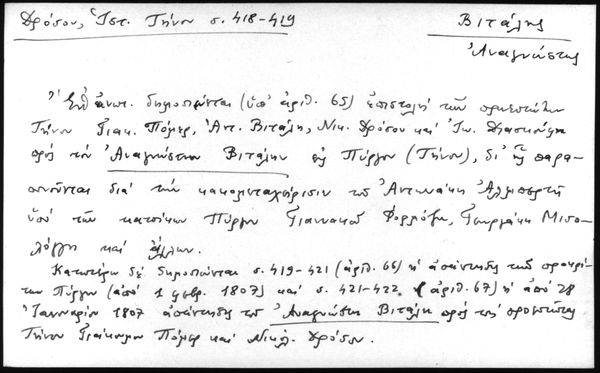 Δρόσου, Ἱστ. Τήνου σ. 418-419
Βιτάλης
Ἀναγνώστης
Ἐν ἀνωτ. δημοσιεύεται (ὑπ' ἀριθ. 65) ἐπιστολὴ τῶν προεστώτων
Τήνου Γιακ. Πώμερ, Ἀντ. Βιτάλη, Νικ. Δρόσου καὶ Ἰω.
πρὸς τὸν Ἀναγνώστην Βιτάλην εἰς Πύργον (Τήνου), δι' ἧς παρα-
πονοῦνται διὰ τὴν κακομεταχείρισιν τοῦ Ἀντωνάκη
ὑπὸ τῶν κατοίκων Πύργου Γιαννακοῦ Φορμόζη, Γεωργάκη Μισο-
λόγγη καὶ ἄλλων.
Κατωτέρω δὲ δημοσιεύεται σ. 419-421 (ἀριθ. 66) ἡ ἀπάντησις τῶν προκρί-
των Πύργου (ἀπὸ 1 φεβρ. 1807) καὶ σ. 421-422 (ἀριθ. 67) ἡ ἀπὸ 28
Ἰανουαρίου 1807 ἀπάντησις τοῦ Ἀναγνώστη Βιτάλη πρὸς τοὺς προεστῶτας
Τήνου Γιάκουμον Πώμερ καὶ Νικόλ. Δρόσον.